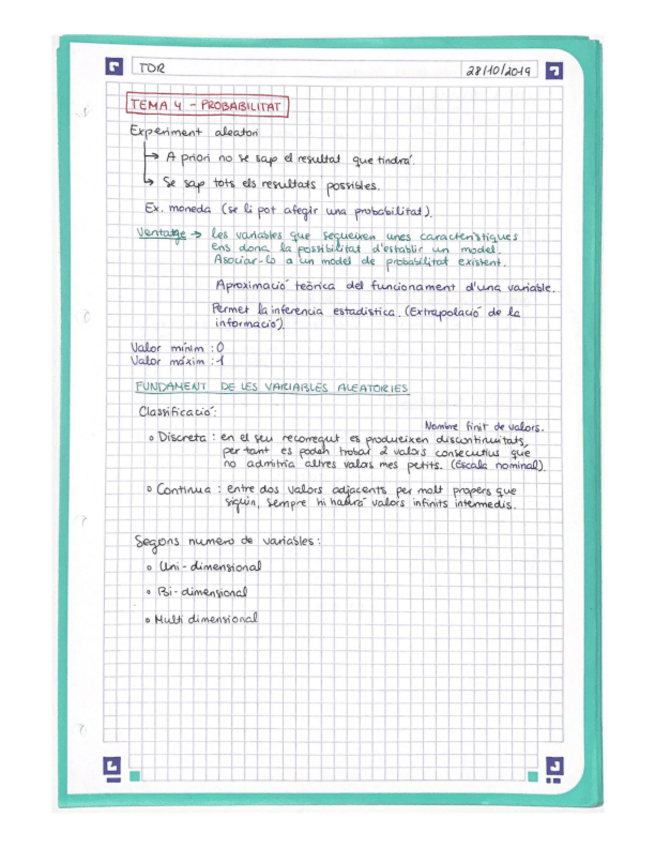 TDR
28/10/2019
TEMA 4 - PROBABILITAT
Experiment aleatori
→ A priori no se sap el resultat que tindrá.
→ Se sap tots els resultats possibles.
Ex. moneda (se li pot afegir una probabilitat).
Ventatge → les variables que segueixen unes característiques
ens dona la possibilitat d'establir un model.
Asociar-lo a un model de probabilitat existent.
Aproximació teòrica del funcionament d'una variable.
Permet la inferencia estadística. (Extrapolació de la
informació).
Valor mínim : 0
Valor máxim : 1
FUNDAMENT DE LES VARIABLES ALEATORIES
Classificació:
Nombre finit de valors.
o Discreta : en el seu recorregut es produeixen discontinuitats,
per tant es poden trobar 2 valors consecutius que
no admitria altres valors mes petits. (Escala nominal).
o Continua : entre dos valors adjacents per molt propers que
siguin, sempre hi haurà valors infinits intermedis.
Segons numero de variables :
o Uni-dimensional
o Bi-dimensional
o Multi dimensional